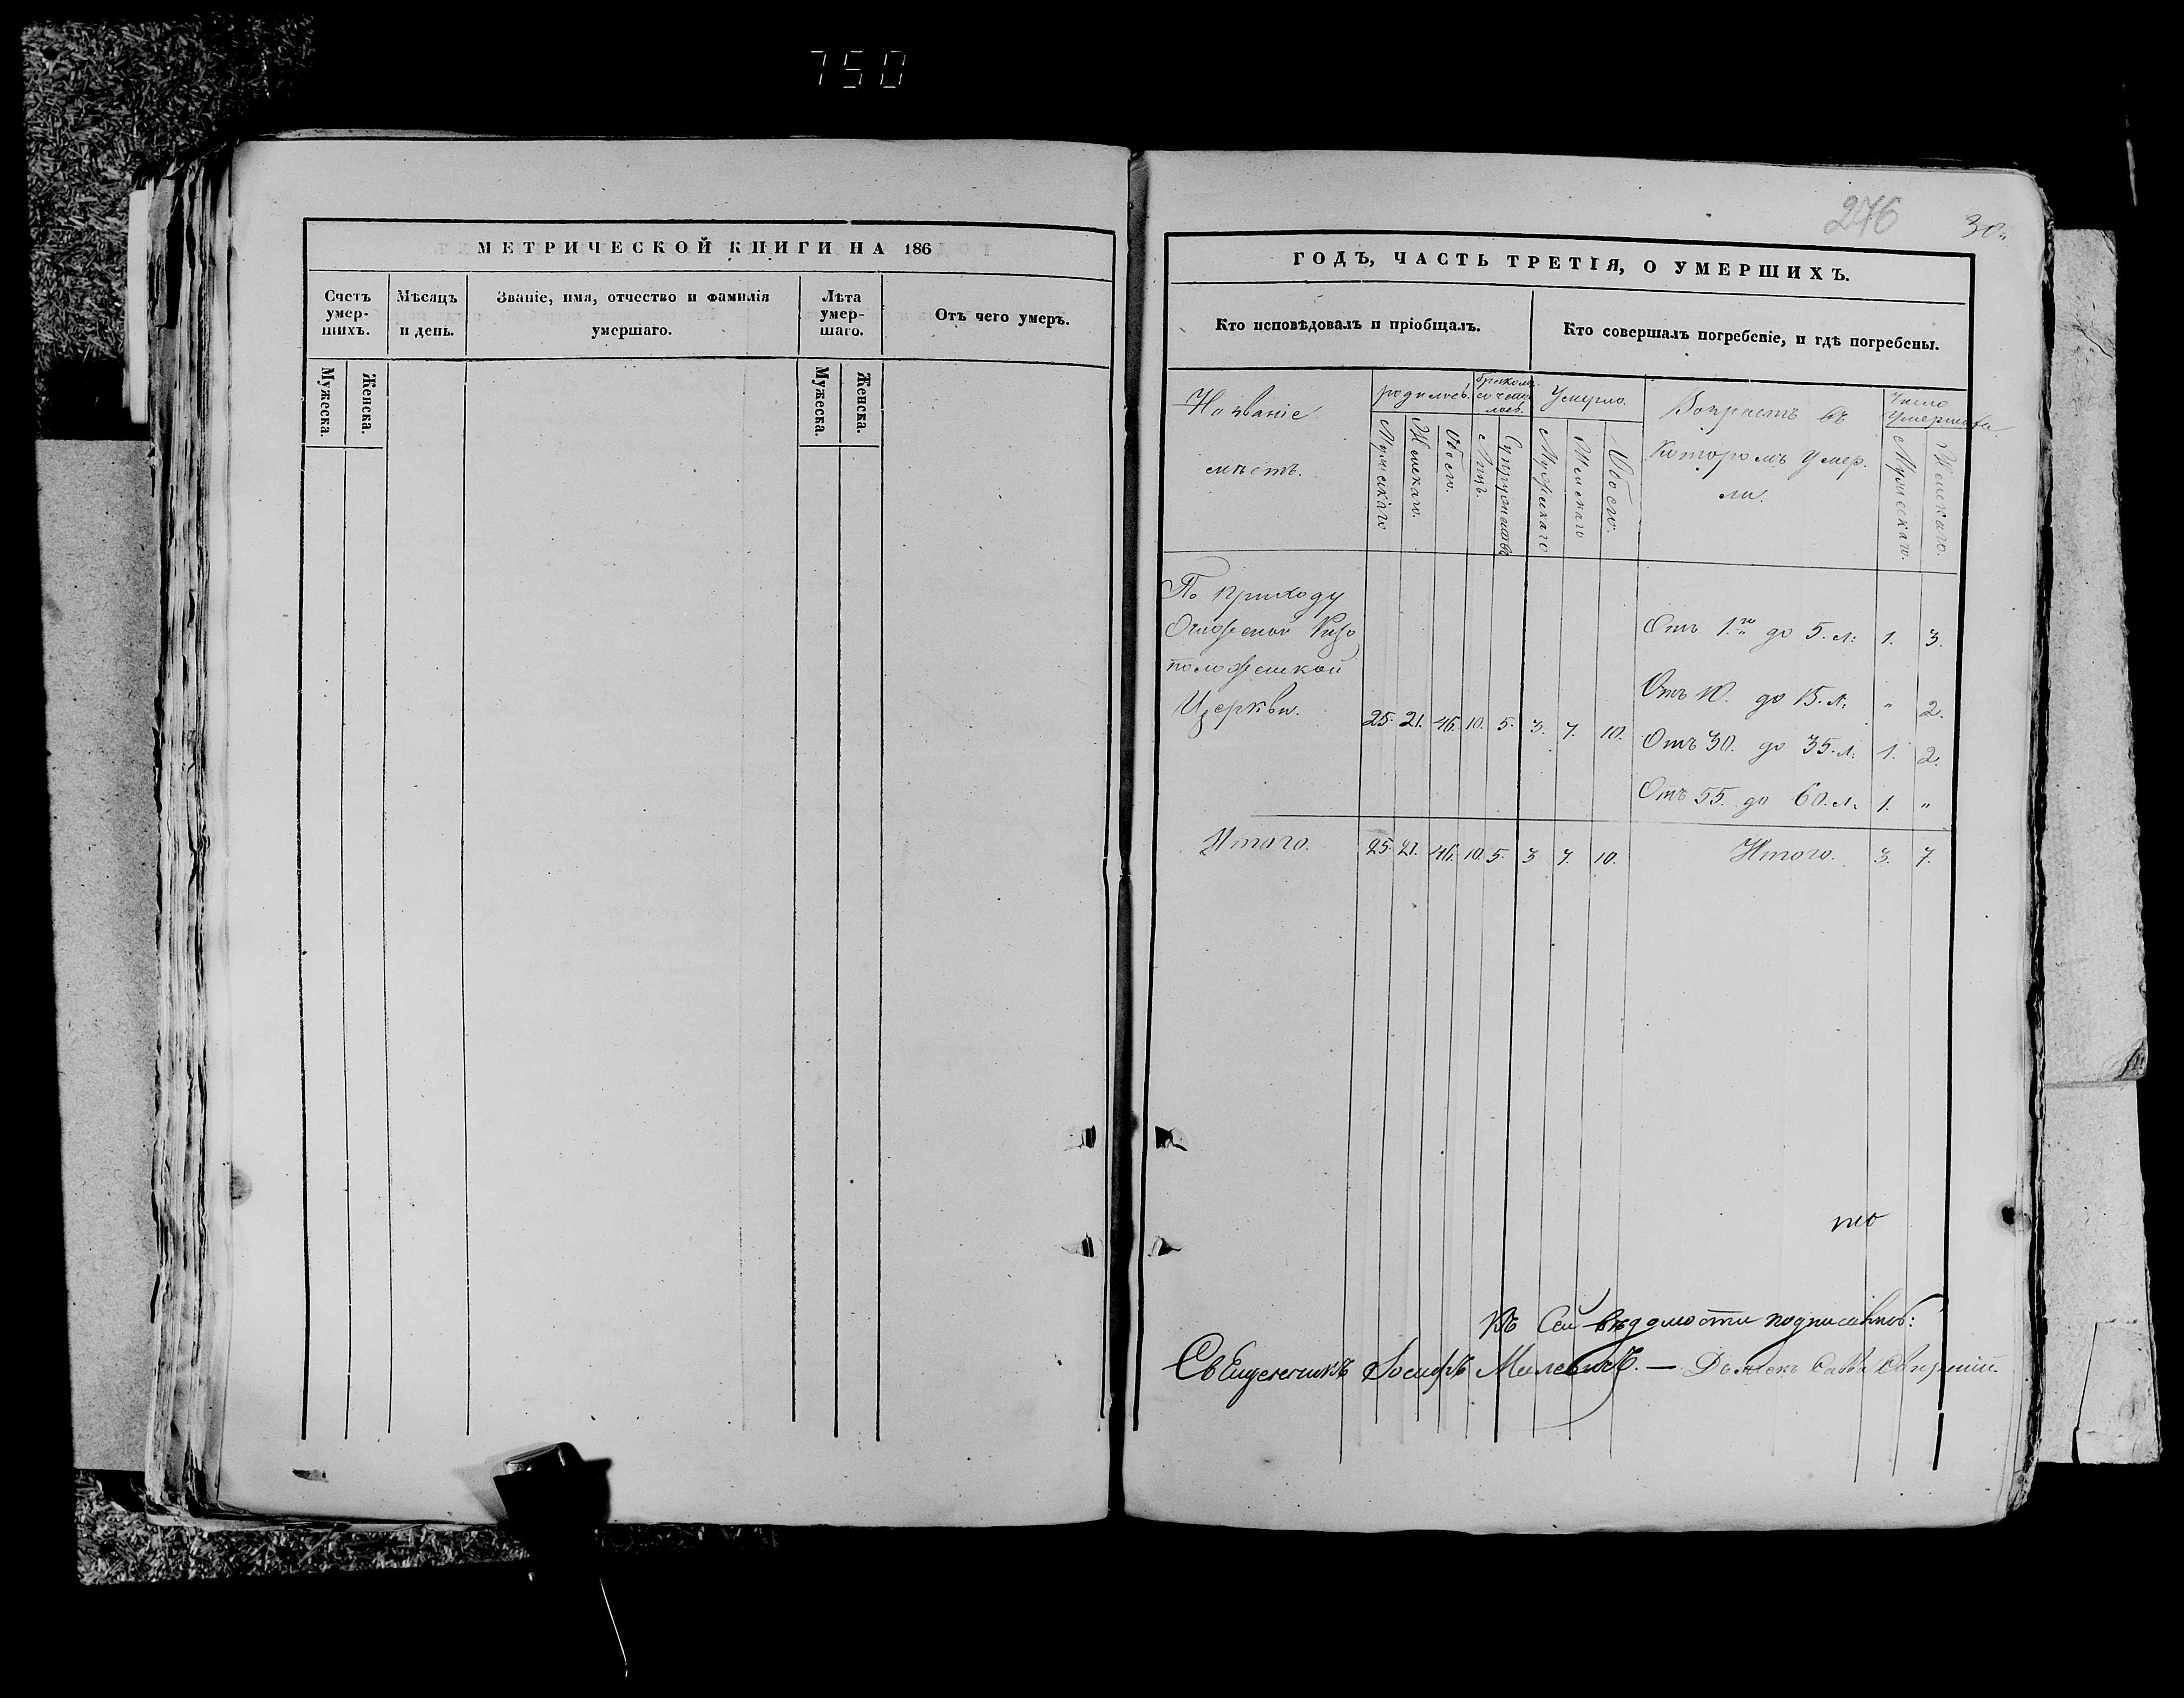 750
МЕТРИЧЕСКОЙ КНИГИ НА 186
Счетъ умер-шихъ.
Мѣсяцъ и день.
Званіе, имя, отчество и фамилія умершаго.
Лѣта умер-шаго.
Отъ чего умеръ.
Мужеска.
Женска.
Мужеска.
Женска.
246
30
ГОДЪ, ЧАСТЬ ТРЕТІЯ, О УМЕРШИХЪ.
Кто исповѣдовалъ и пріобщалъ.
Кто совершалъ погребеніе, и гдѣ погребены.
Названіе мѣстъ.
родилось.
Умерло.
Возрастъ въ которомъ умер. ли.
Число
Мужескаго
Женскаго.
Обоего.
Лицъ.
Супружествъ
Мужескаго
Женскаго
Обоего.
Мужескаго.
Женскаго.
По приходу
положенской
Церкви. 25. 21. 46. 10. 5. 3. 7. 10.
Отъ 1го до 5. л: 1. 3.
Отъ 10. до 15. л. " 2.
Отъ 30. до 35. л. 1. 2.
Отъ 55. до 60. л. 1. "
Итого. 25. 21. 46. 10. 5. 3 7. 10. Итого. 3. 7.
Къ сей вѣдомости
Священникъ Іосифъ Милевичъ. — Дьячекъ Савва